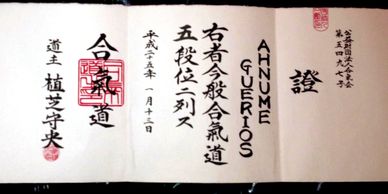 公益財団法人合気会
第五四九七号
證
AHNUME
GUERIOS
右者今般合氣道
五段位ニ列ス
平成二十五年 一月十三日
合氣道
道主 植芝守央